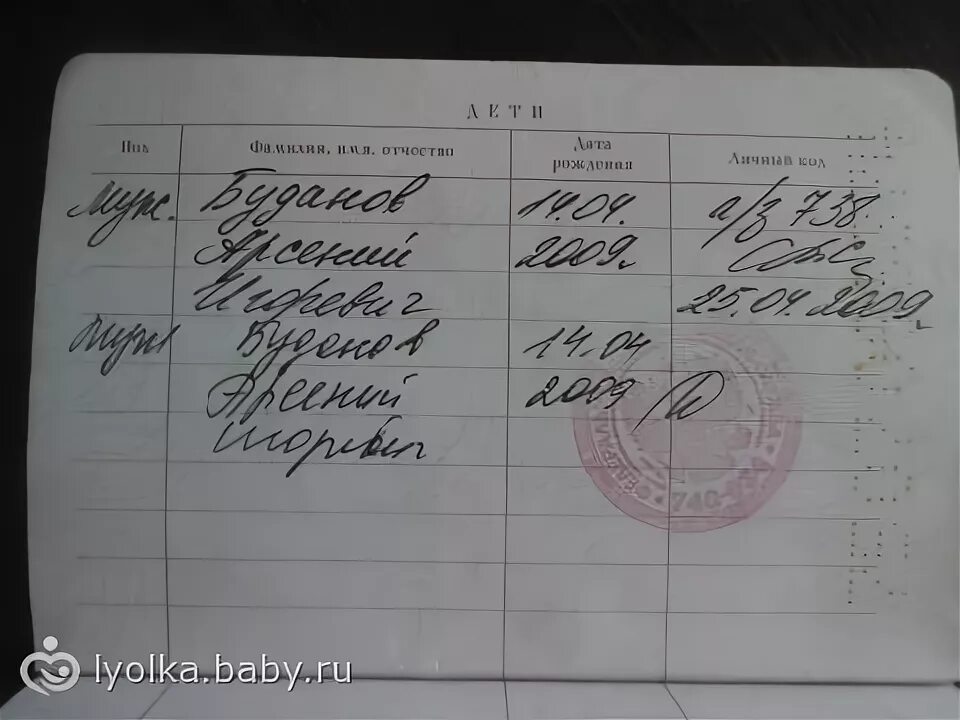 ДЕТИ
Пол Фамилия, имя, отчество Дата рождения Личный код
муж. Буданов 14.04. а/з 738
Арсений 2009г
Игоревич 25.04.2009г
муж Буданов 14.04
Арсений 2009
Игоревич
740
lyolka.baby.ru